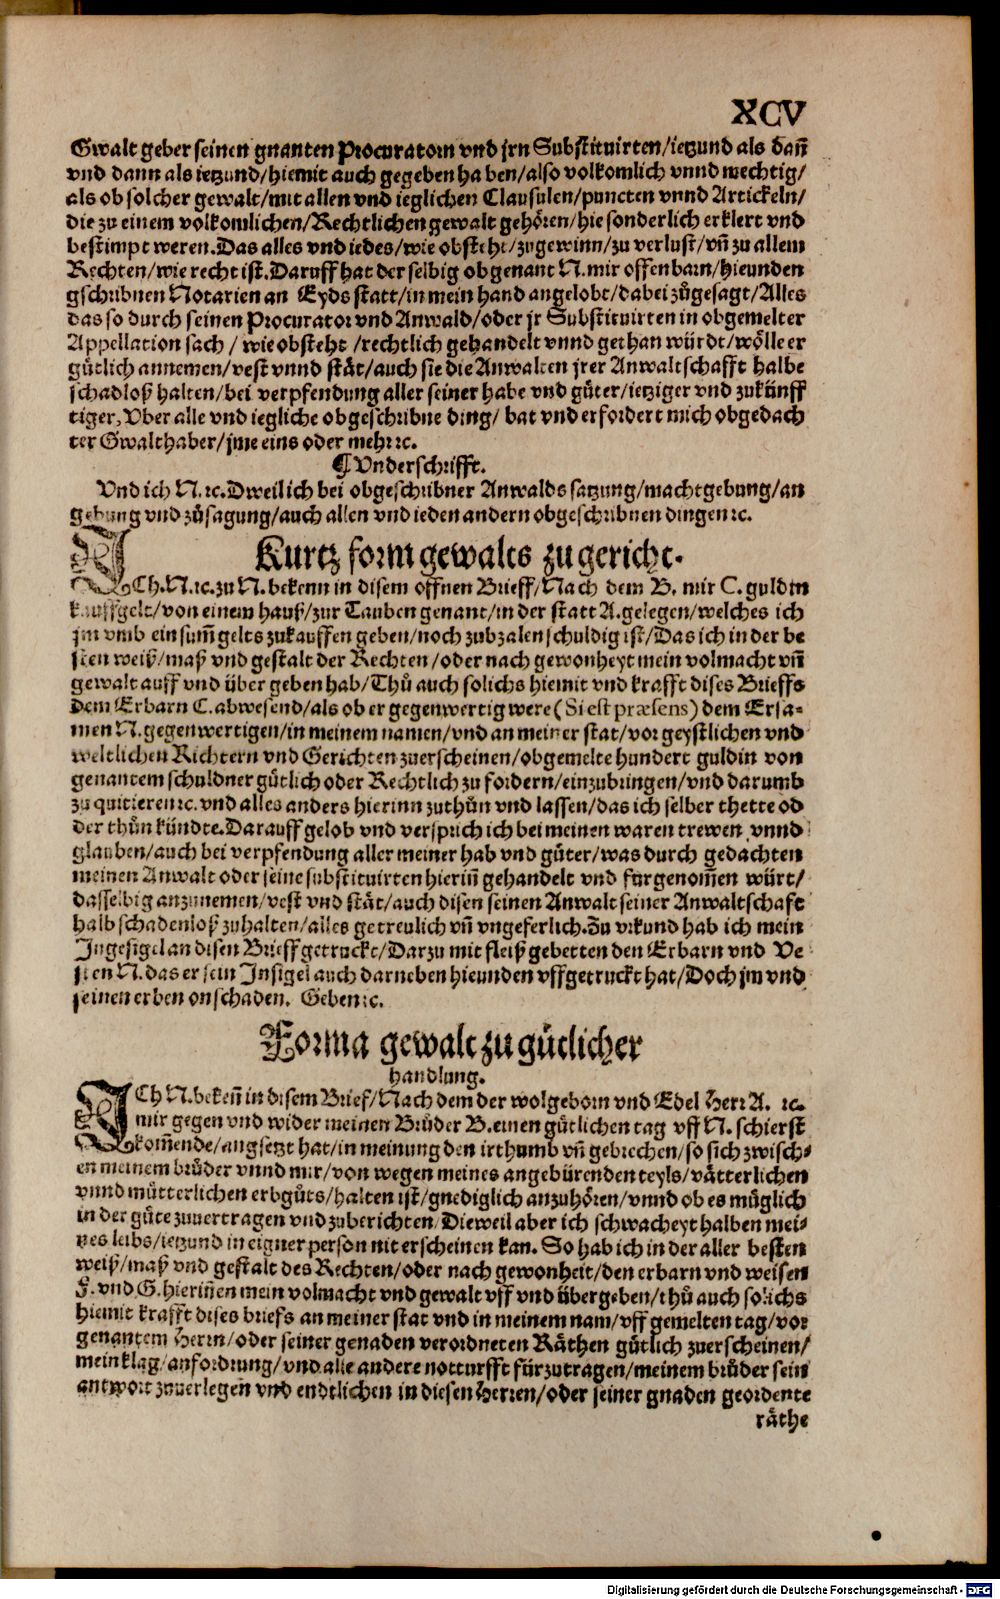 XCV
Gwalt geber seinen gnanten Procuratorn vnd jrn Substituirten/ietzund als dañ
vnd dann als ietzund/hiemit auch gegeben haben/also volkomlich vnnd mechtig/
als ob solcher gewalt/mit allen vnd ieglichen Clausulen/puncten vnnd Artickeln/
die zu einem volkomlichen/Rechtlichen gewalt gehören/hie sonderlich erklert vnd
bestimpt weren. Das alles vnd iedes/wie obsteht/zu gewinn/zu verlust/vñ zu allem
Rechten/wie recht ist. Daruff hat der selbig obgenant N. mir offenbarn/hieunden
gschribnen Notarien an Eyds statt/in mein hand angelobt/dabei zůgesagt/Alles
das so durch seinen Procurator vnd Anwald/oder jr Substituirten in obgemelter
Appellation sach / wie obsteht /rechtlich gehandelt vnnd gethan würdt/wölle er
gůtlich annemen/vest vnnd stät/auch sie die Anwalten jrer Anwaltschafft halbe
schadloß halten/bei verpfendung aller seiner habe vnd gůter/ietziger vnd zukünff
tiger, Vber alle vnd iegliche obgeschribne ding/ bat vnd erfordert mich obgedach
ter Gwalthaber/jme eins oder mehr ꝛc.
¶ Vnderschrifft.
Vnd ich N. ꝛc. Dweil ich bei obgeschribner Anwalds satzung/machtgebung/an
gebung vnd zůsagung/auch allen vnd ieden andern obgeschribnen dingen ꝛc.
Kurtz form gewalts zu gericht.
ICh. N. ꝛc. zu N. bekenn in disem offnen Brieff/Nach dem B. mir C. guldin
kauffgelt/von einem hauß/zur Tauben genant/in der statt A. gelegen/welches ich
jm vmb ein sum̃ gelts zukauffen geben/noch zubzalen schuldig ist/Das ich in der be
sten weiß/maß vnd gestalt der Rechten /oder nach gewonheyt mein volmacht vñ
gewalt auff vnd über geben hab/Thů auch solichs hiemit vnd krafft dises Brieffs
dem Erbarn C. abwesend/als ob er gegenwertig were (Si est præsens) dem Ersa-
men N. gegenwertigen/in meinem namen/vnd an meiner stat/vor geystlichen vnd
weltlichen Richtern vnd Gerichten zuerscheinen/obgemelte hundert guldin von
genantem schuldner gůtlich oder Rechtlich zu fordern/einzubringen/vnd darumb
zu quitieren ꝛc. vnd alles anders hierinn zuthůn vnd lassen/das ich selber thette od
der thůn kündte. Darauff gelob vnd versprich ich bei meinen waren trewen vnnd
glauben/auch bei verpfendung aller meiner hab vnd gůter/was durch gedachten
meinen Anwalt oder seine substituirten hieriñ gehandelt vnd fürgenom̃en würt/
dasselbig anzunemen/vest vnd stät/auch disen seinen Anwalt seiner Anwaltschaft
halb schadenloß zuhalten/alles getreulich vñ vngeferlich. Zu vrkund hab ich mein
Ingesigel an disen Brieff getruckt/Darzu mit fleiß gebetten den Erbarn vnd Ve
sten N. das er sein Insigel auch darneben hieunden vffgetruckt hat/Doch jm vnd
seinen erben on schaden. Geben ꝛc.
Forma gewalt zu gůtlicher
handlung.
ICh N. bekeñ in disem Brief/Nach dem der wolgeborn vnd Edel Herr A. ꝛc.
mir gegen vnd wider meinen Brůder B. einen gůtlichen tag vff N. schierst
kom̃ende/angsetzt hat/in meinung den irthumb vñ gebrechen/so sich zwisch-
en meinem brůder vnnd mir/von wegen meines angebürenden teyls/vätterlichen
vnnd můtterlichen erbgůts/halten ist/gnediglich anzuhören/vnnd ob es müglich
in der gůte zuuertragen vnd zuberichten/Dieweil aber ich schwacheyt halben mei-
nes leibs/ietzund in eigner person nit erscheinen kan. So hab ich in der aller besten
weiß/maß vnd gestalt des Rechten/oder nach gewonheit/den erbarn vnd weisen
F. vnd G. hieriñen mein volmacht vnd gewalt vff vnd übergeben/thů auch solichs
hiemit krafft dises briefs an meiner stat vnd in meinem nam/vff gemelten tag/vor
genantem Herrn/oder seiner genaden verordneten Räthen gůtlich zuerscheinen/
mein klag/anfordrung/vnd alle andere notturfft fürzutragen/meinem brůder sein
antwort zuuerlegen vnd endtlichen in diesen Herren/oder seiner gnaden geordente
räthe
Digitalisierung gefördert durch die Deutsche Forschungsgemeinschaft - DFG